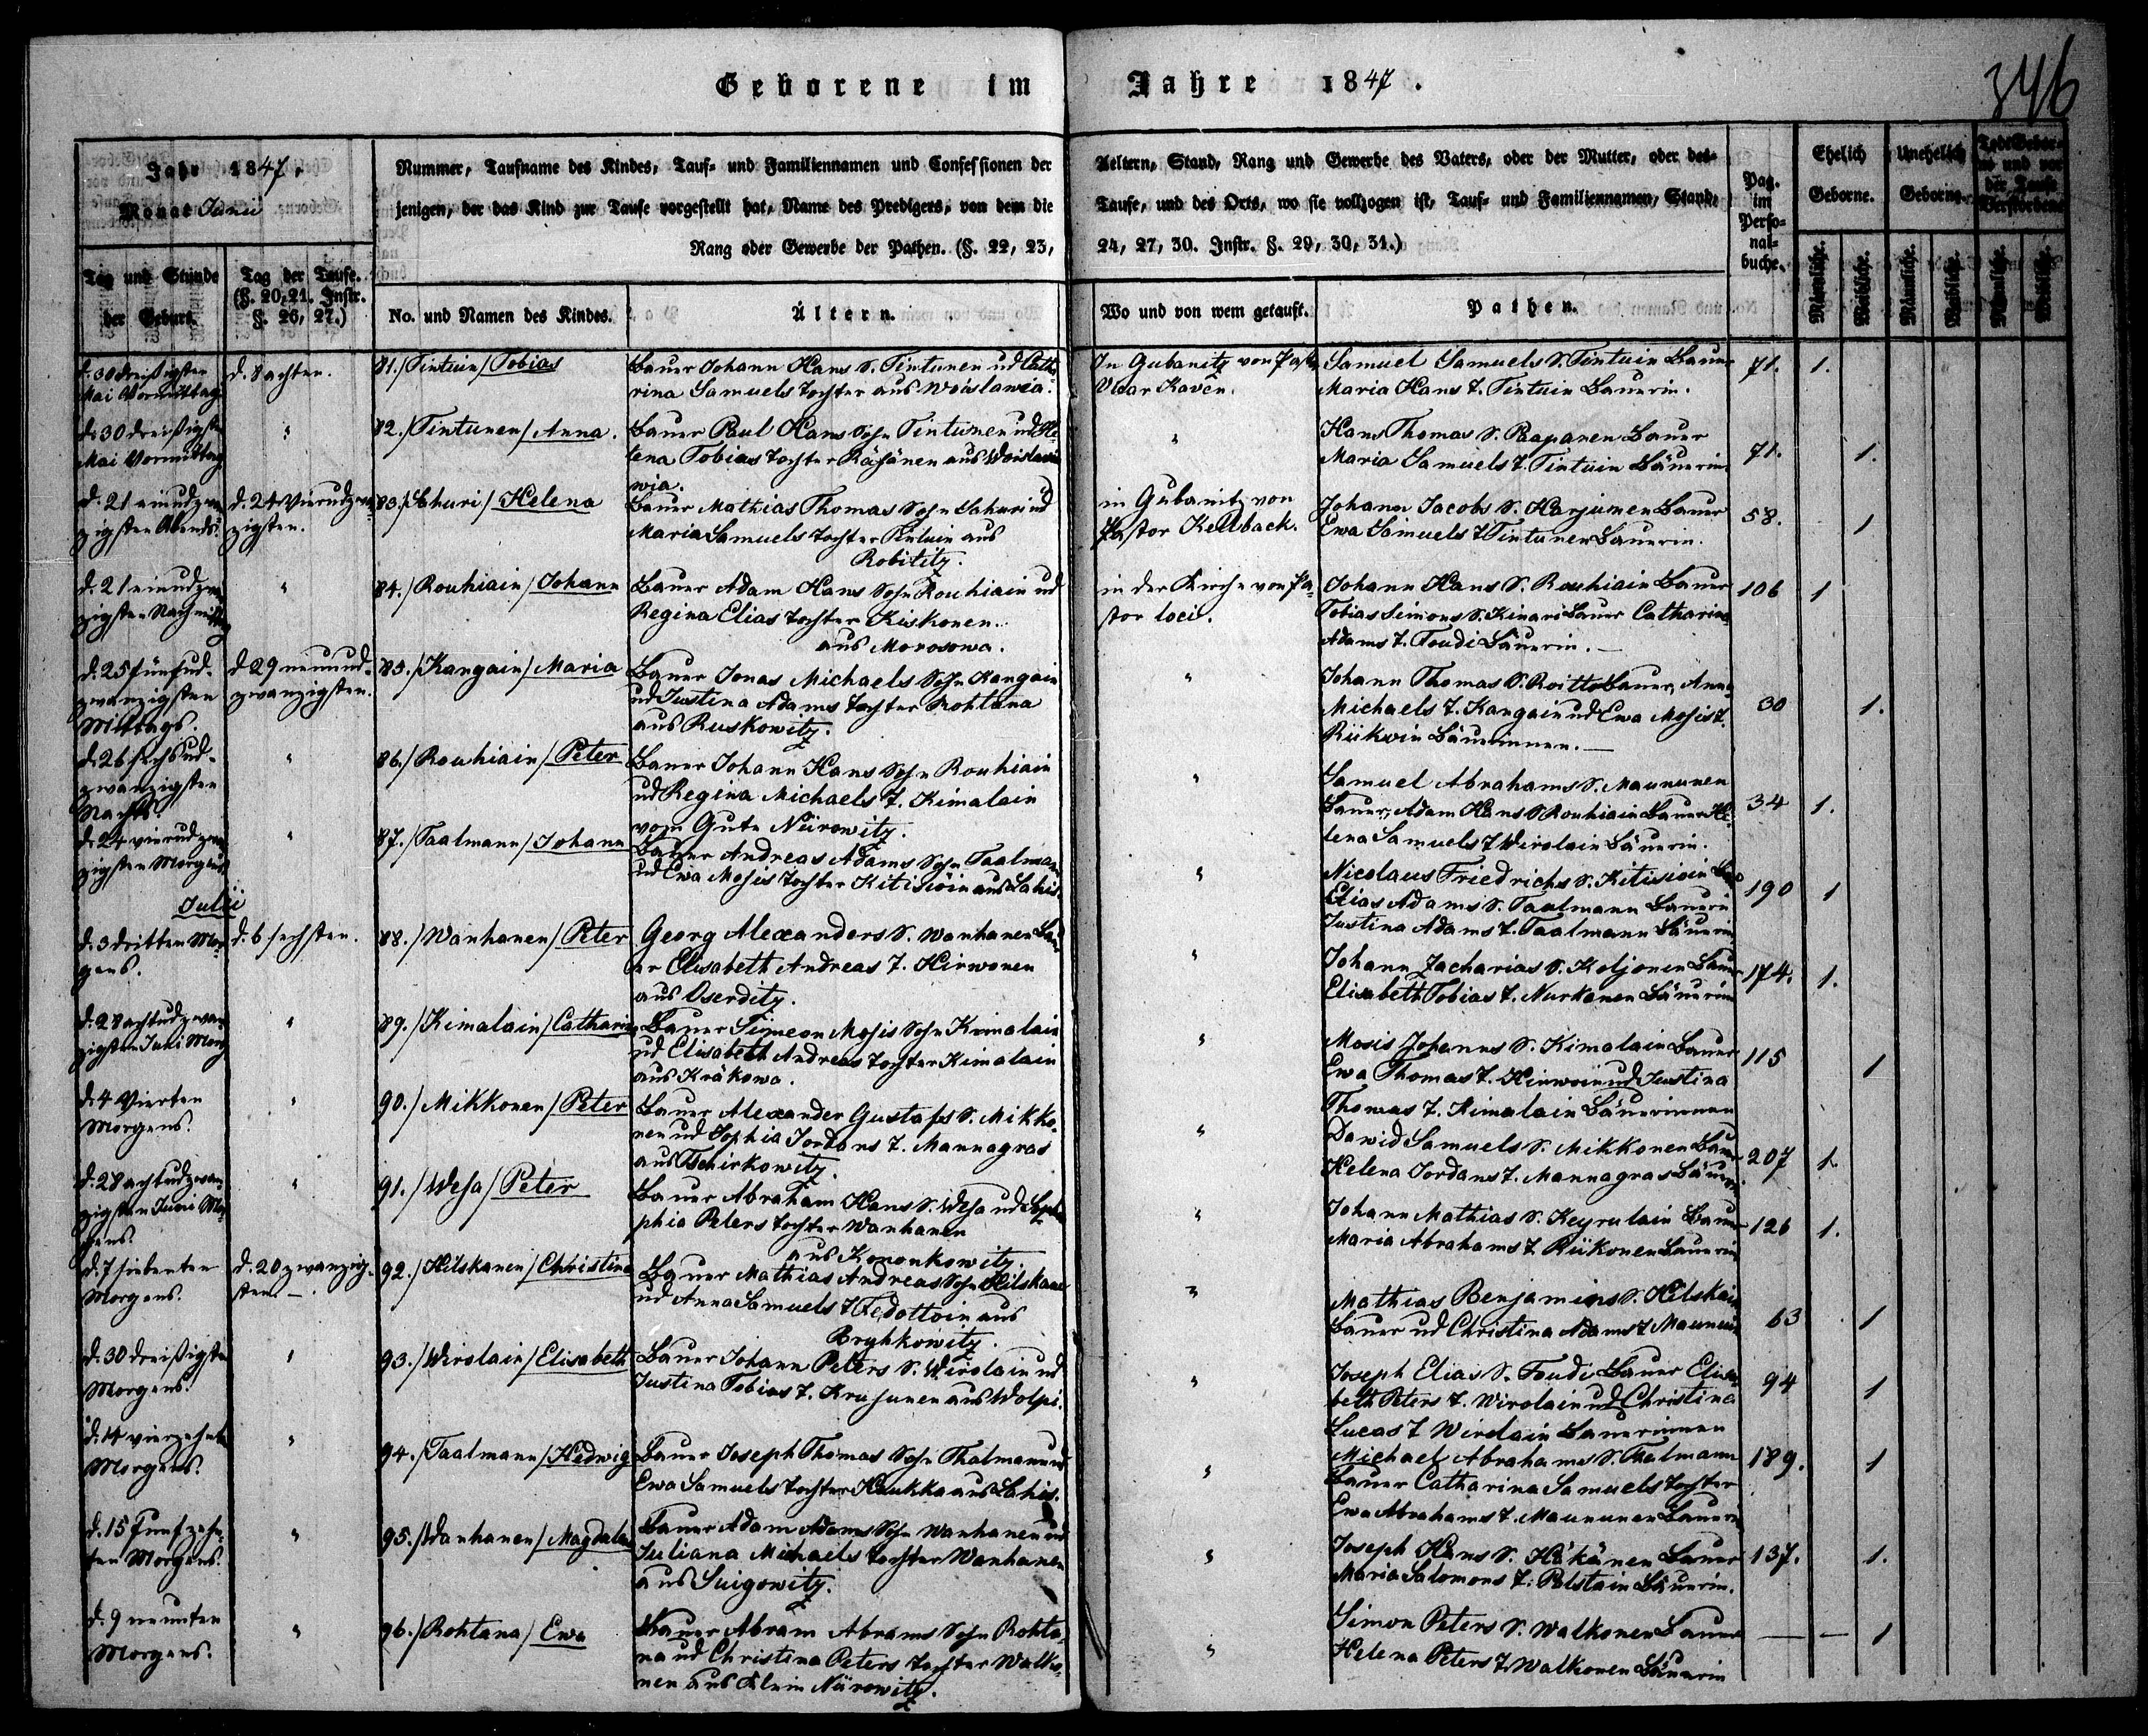 Geborene im Jahre 1847.
346
Jahr 1847.
Monat Junii
Nummer, Taufname des Kindes, Tauf- und Familiennamen und Confessionen der
jenigen, der das Kind zur Taufe vorgestellt hat, Name des Predigers, von dem die
Rang oder Gewerbe der Pathen. (§. 22, 23,
Aeltern, Stand, Rang und Gewerbe des Vaters, oder der Mutter, oder des-
Taufe, und des Orts, wo sie vollzogen ist, Tauf- und Familiennamen, Stand,
24, 27, 30. Instr. §. 29, 30, 31.)
Pag. im Perso-nal-buche.
Ehelich Geborne.
Unehelich Geborne.
Todt Gebor-ne und vor der Taufe Verstorbene
Tag und Stunde der Geburt.
Tag der Taufe. (§. 20, 21. Instr. §. 26, 27.)
No. und Namen des Kindes.
Ältern.
Wo und von wem getauft.
Pathen.
Männliche. Weibliche. Männliche. Weibliche. Männliche. Weibliche.
d. 30 dreißigsten
Mai Vormittag
d. 8 achten.
81./Tintuin/Tobias
Bauer Johann Hans S. Tintunen ud Catha
rina Samuels Tochter aus Woislawia.
In Gubanitz von Past
Oscar Kaven.
Samuel Samuels S. Tintuin Bauer
Maria Hans T. Tintuin Bäuerin.
71. 1.
d. 30 dreißigsten
Mai Vormittag
"
82./Tintunen/Anna.
Bauer Paul Hans Sohn Tintunen ud He
lena Tobias Tochter Räsänen aus Woisla
wia.
"
Hans Thomas S. Paapanen Bauer
Maria Samuels T. Tintuin Bäuerin
71. 1.
d. 21 einudzwan
zigsten Abends.
d. 24 Vierudzwan
zigsten.
83./Schuri/Helena
Bauer Mathias Thomas Sohn Schuri ud
Maria Samuels Tochter Tintuin aus
Robititz.
in Gubanitz von
Pastor Kellback.
Johann Jacobs S. Harjunen Bauer
Ewa Samuels T Tintunen Bäuerin.
58. 1
d. 21 einudzwan
zigsten Nachmittag
"
84./Rouhiain/Johann
Bauer Adam Hans Sohn Rouhiain ud
Regina Elias Tochter Kiskonen.
aus Morosowa.
in der Kirche von Pa
stor loci.
Johann Hans S. Rouhiain Bauer
Tobias Simons S. Kinari Bauer Catharina
Adams T. Toudi Bäuerin.
106 1
d. 25 fünfud-
zwanzigsten
Mittags.
d. 29 neunud-
zwanzigsten.
85./Kangain/Maria
Bauer Jonas Michaels Sohn Kangain
ud Justina Adams Tochter Rohtana
aus Ruskowitz.
"
Johann Thomas S. Roitto Bauer, Anna
Michaels T. Kangain ud Ewa Mosis T.
Riikoin Bäuerinnen.
30 1.
d. 26 sechsud-
zwanzigsten
Nachts.
"
86./Rouhiain/Peter
Bauer Johann Hans Sohn Rouhiain
ud Regina Michaels T. Kimalain
vom Gute Nürowitz.
"
Samuel Abrahams S. Maununen
Bauer, Adam Hans S Rouhiain Bauer He
lena Samuels T Wirolain Bäuerin.
34 1.
d. 24 vierudzwan
zigsten Morgens
"
87./Taalmann/Johann
Bauer Andreas Adams Sohn Taalman
ud Ewa Mosis Tochter Kitisiöin aus Lahis
"
Nicolaus Friedrichs S. Kitisioin
Elias Adams S. Taalmann Bauern
Justina Adams T. Taalmann Bäuerin
190 1
Julii
d. 3 dritten Mor
gens.
d. 6 sechsten.
88./Wanhanen/Peter
Georg Alexanders S. Wanhanen Bau
er Elisabeth Andreas T. Hirwonen
aus Oserditz.
"
Johann Zacharias S. Koljonen Bauer
Elisabeth Tobias T. Nurkanen Bäuerin
174. 1.
d. 28 achtudzwan
zigsten Juni Morg
"
89./Kimalain/Catharina
Bauer Simeon Mosis Sohn Kimalain
ud Elisabeth Andreas Tochter Kimalain
aus Kräkowa.
"
Mosis Johanns S. Kimalain Bauer
Ewa Thomas T. Hirwoin ud Justina
Thomas T. Kimalain Bäuerinnen
115 1
d. 4 Vierten
Morgens.
"
90./Mikkonen/Peter
Bauer Alexander Gustafs S. Mikko-
nen ud Sophia Jordans T. Mannagras
aus Tschirkowitz.
"
Dawid Samuels S. Mikkonen Bauer
Helena Jordans T. Mannagras Bäuerin
207 1.
d. 28 achtudzwan
zigsten Juni Mor
gens.
"
91./Wesa/Peter
Bauer Abraham Hans S. Wesa ud So
phia Peters Tochter Wanhanen
aus Kononkowitz.
"
Johann Mathias S. Keyrulain Bauer
Maria Abrahams T. Riikonen Bäuerin
126 1.
d. 7 siebenten
Morgens.
d. 20 zwanzig-
sten.
92./Hilskanen/Christina
Bauer Mathias Andreas Sohn Hilskane
ud Anna Samuels T Fedottoin aus
Bryhkowitz.
"
Mathias Benjamins S. Hilskain
Bauer ud Christina Adams T Maunuin
63 1
d. 30 dreißigsten
Morgens.
"
93./Wirolain/Elisabeth
Bauer Johann Peters S. Wirolain ud
Justina Tobias T. Krusunen aus Wolpi.
"
Joseph Elias S. Toudi Bauer Elisa
beth Peters T. Wirolain ud Christina
Lucas T Wirolain Bäuerinnen
94 1
d. 14 vierzehnten
Morgens.
"
94./Taalmann/Hedwig
Bauer Joseph Thomas Sohn Thalmann ud
Ewa Samuels Tochter Haukka aus Lahis.
"
Michael Abrahams S. Thalmann
Bauer Catharina Samuels Tochter
Ewa Abrahams T. Maununen Bäuerin
189. 1
d. 15 Funfzehn
ten Morgens.
"
95./Wanhanen/Magdalena
Bauer Adam Adams Sohn Wanhanen ud
Juliana Michaels Tochter Wanhanen
aus Suigowitz.
"
Joseph Hans S. Häkänen Bauer
Maria Salomons T. Polstain Bäuerin.
137. 1.
d. 9 neunten
Morgens.
"
96./Rohtana/Ewa
Bauer Abram Abrams Sohn Rohta-
na ud Christina Peters Tochter Walko-
nen aus Klein Nürowitz.
"
Simon Peters S. Walkonen Bauer
Helena Peters T. Walkonen Bäuerin
— — 1